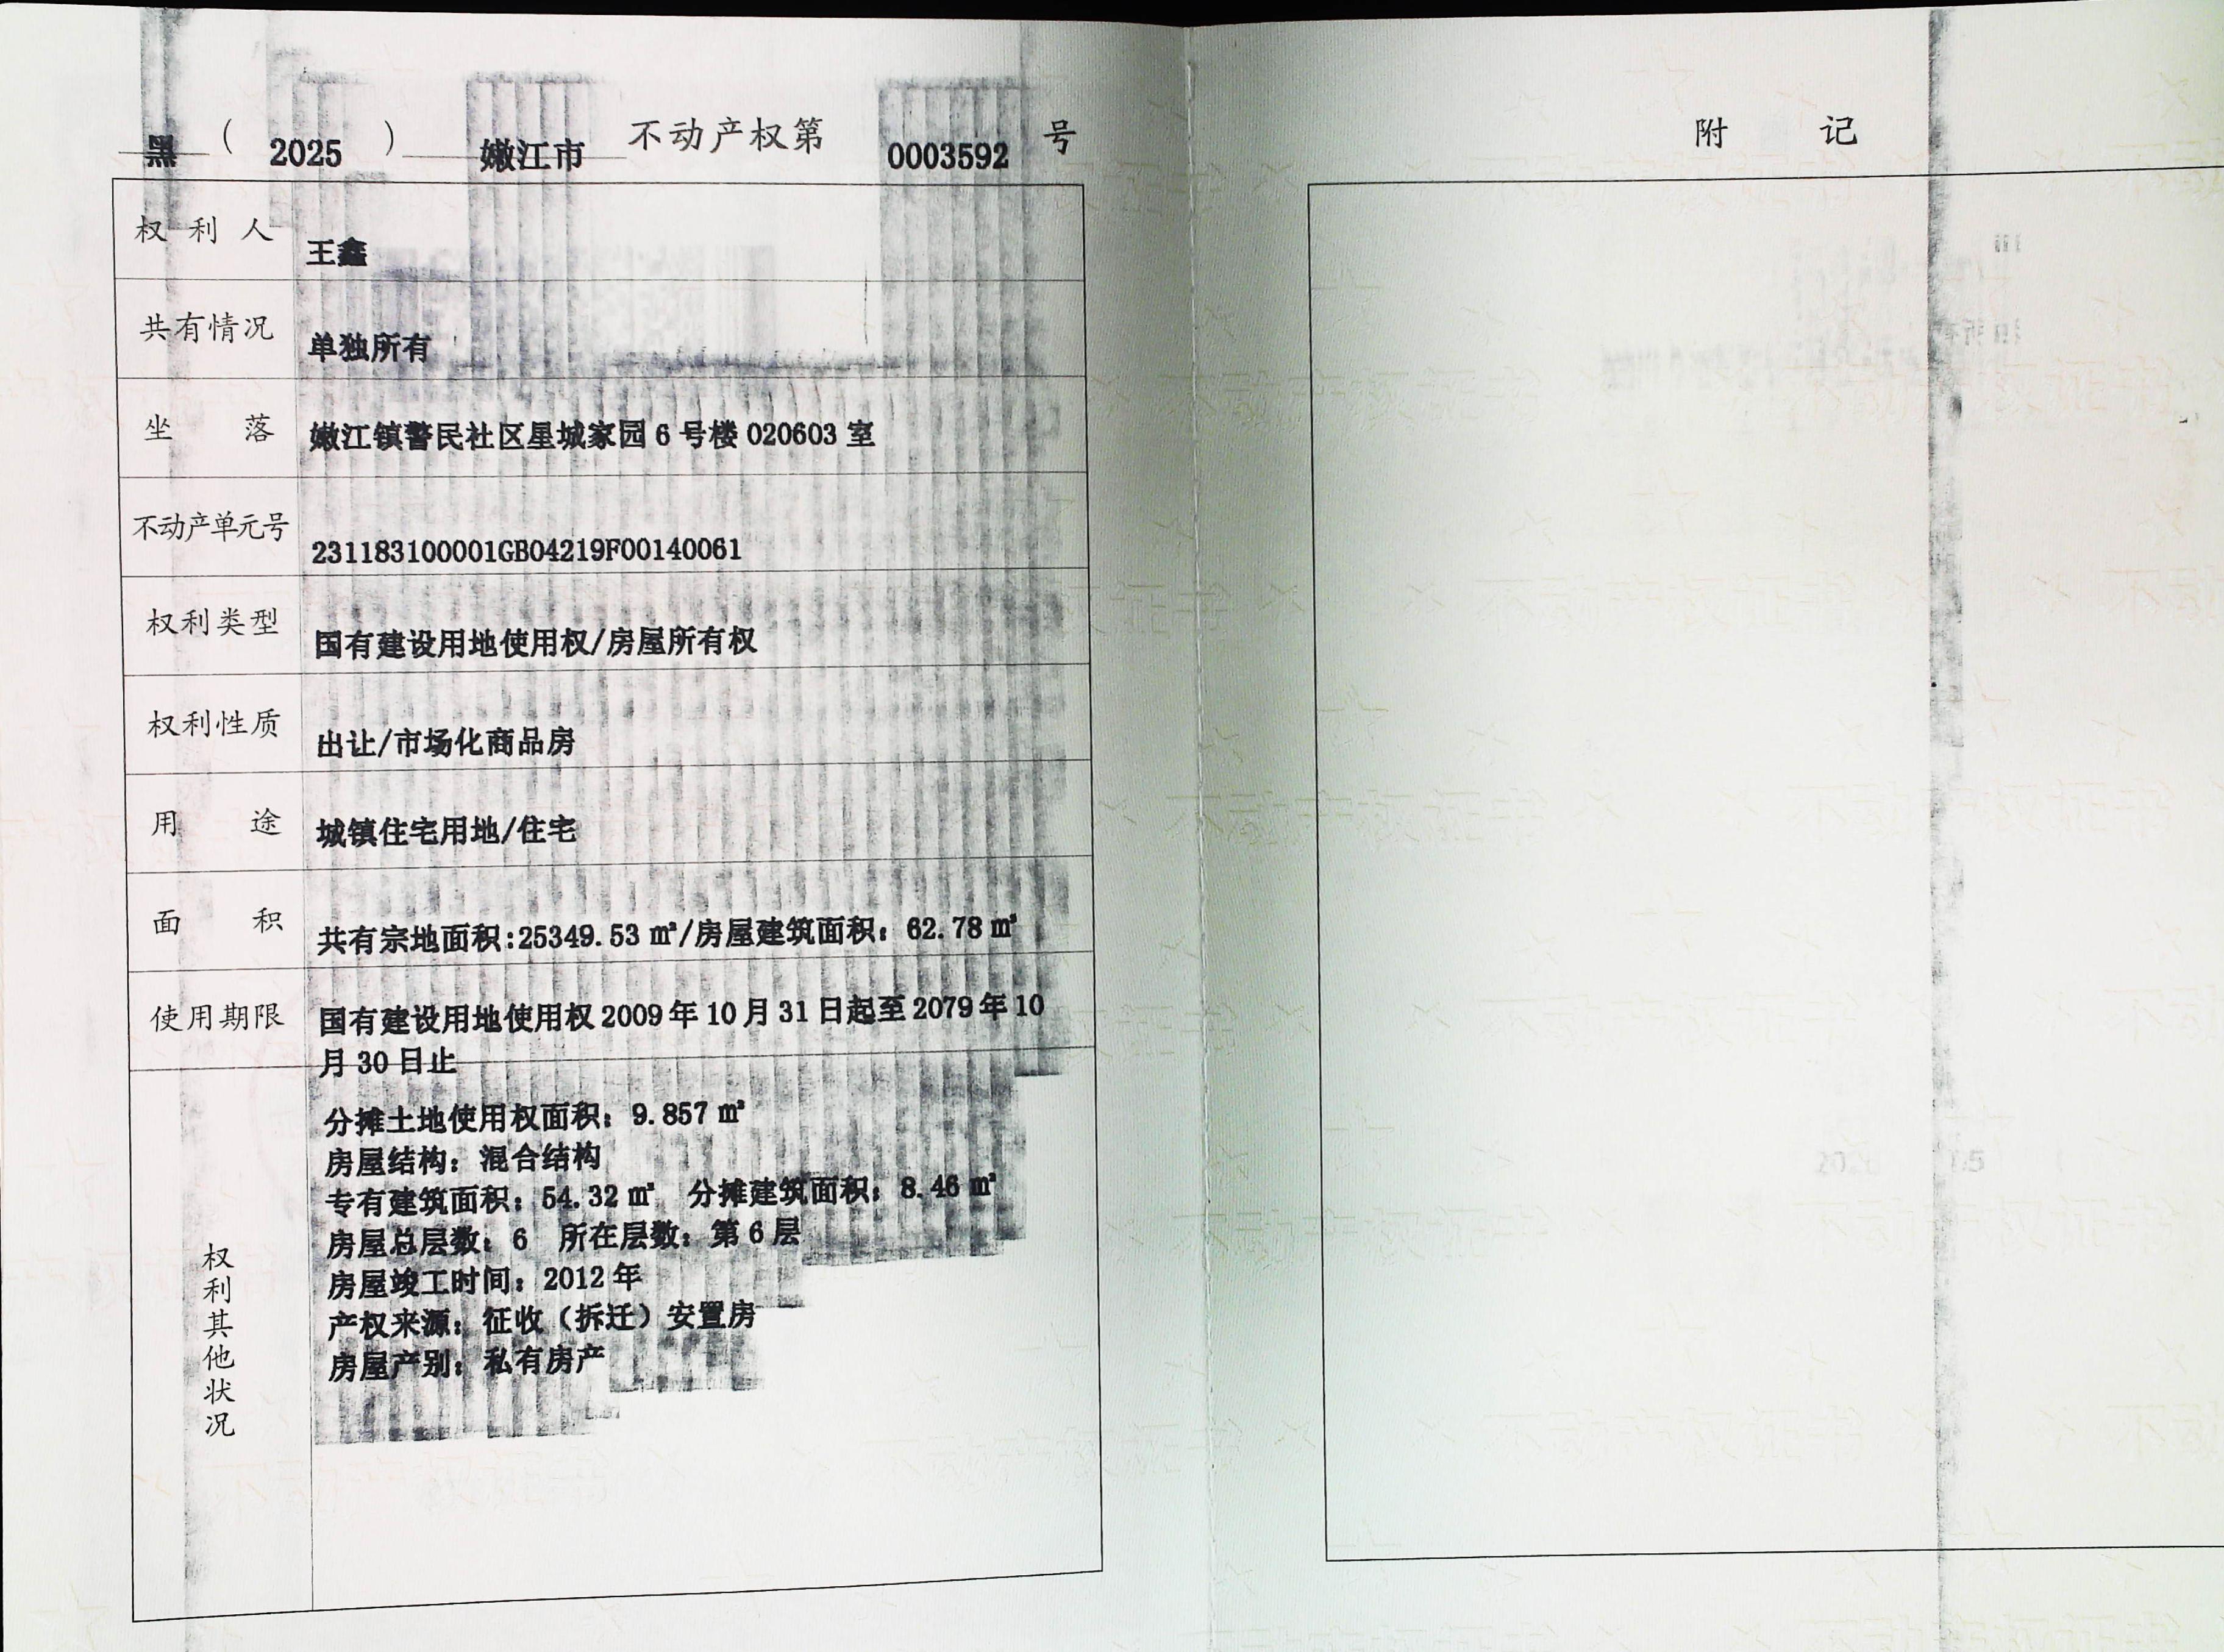 黑（2025）嫩江市不动产权第0003592号
权利人 王鑫
共有情况 单独所有
坐落 嫩江镇警民社区星城家园6号楼020603室
不动产单元号 231183100001GB04219F00140061
权利类型 国有建设用地使用权/房屋所有权
权利性质 出让/市场化商品房
用途 城镇住宅用地/住宅
面积 共有宗地面积:25349.53㎡/房屋建筑面积：62.78㎡
使用期限 国有建设用地使用权2009年10月31日起至2079年10
月30日止
权利其他状况
分摊土地使用权面积：9.857㎡
房屋结构：混合结构
专有建筑面积：54.32㎡ 分摊建筑面积：8.46㎡
房屋总层数：6 所在层数：第6层
房屋竣工时间：2012年
产权来源：征收（拆迁）安置房
房屋产别：私有房产
附记